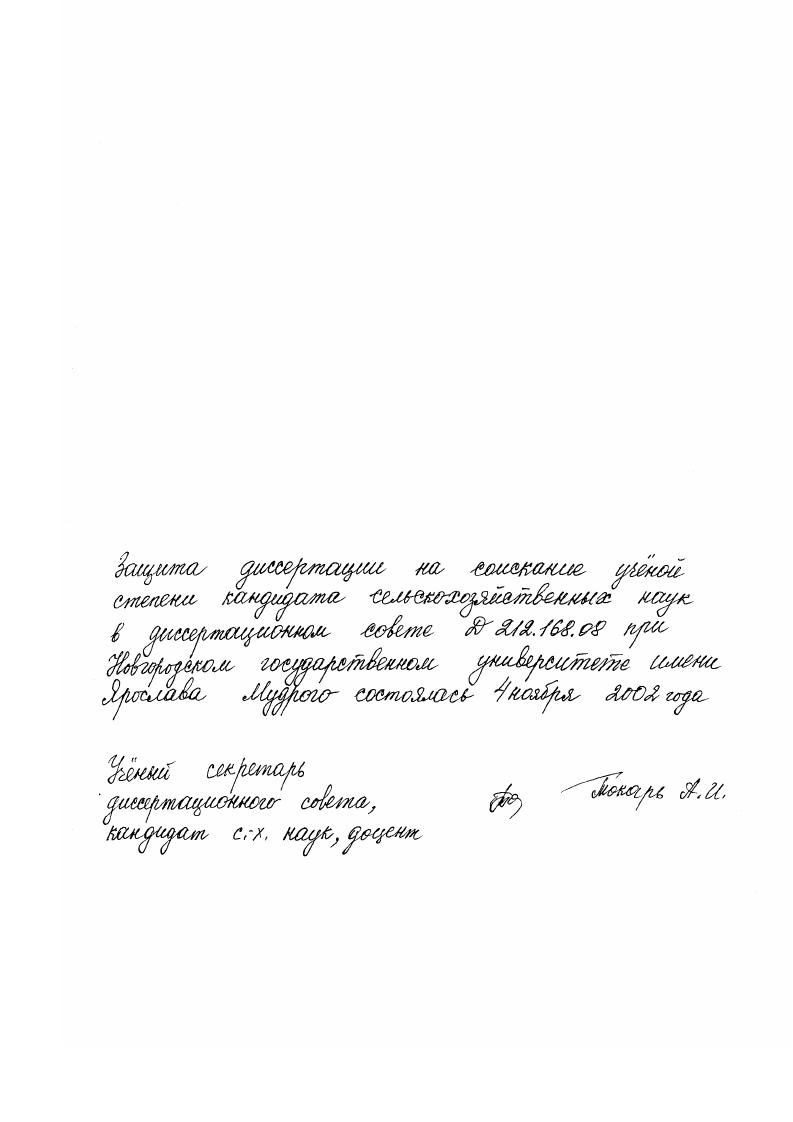 Защита диссертации на соискание учёной
степени кандидата сельскохозяйственных наук
в диссертационном совете Д 212.168.08 при
Новгородском государственном университете имени
Ярослава Мудрого состоялась 4 ноября 2002 года
Учёный секретарь
диссертационного совета,
Токарь А.И.
кандидат с.-х. наук, доцент